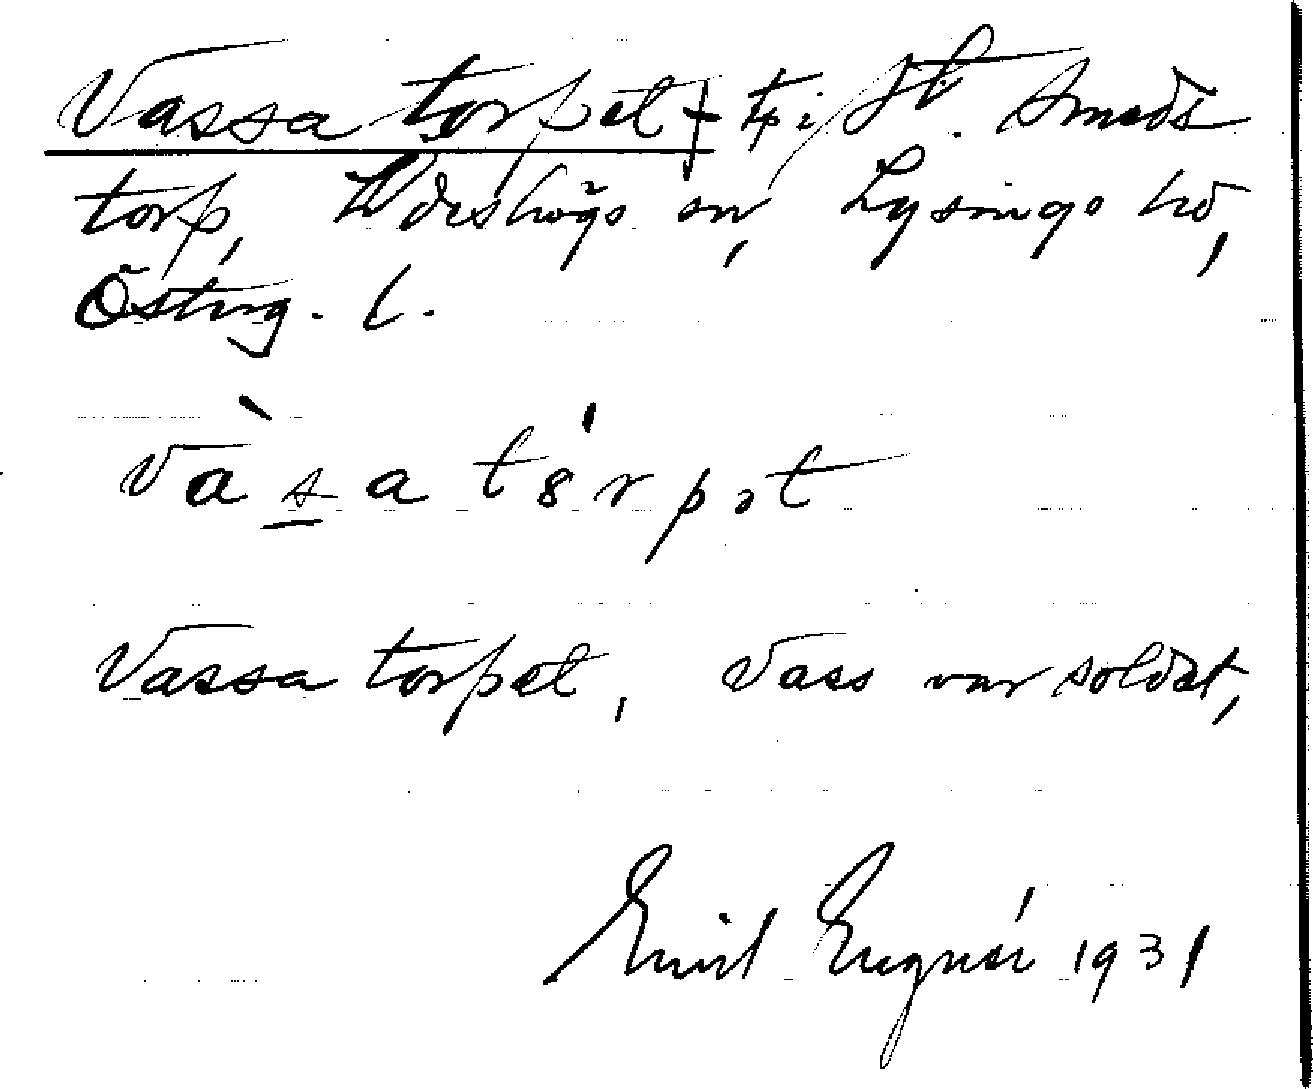 Vassatorpet † tp i St. Smeds
torp, Ödeshögs sn, Lysings hd,
Östg. l.
vàsatórpət
Vassatorpet, Vass var soldat,
Emil 1931